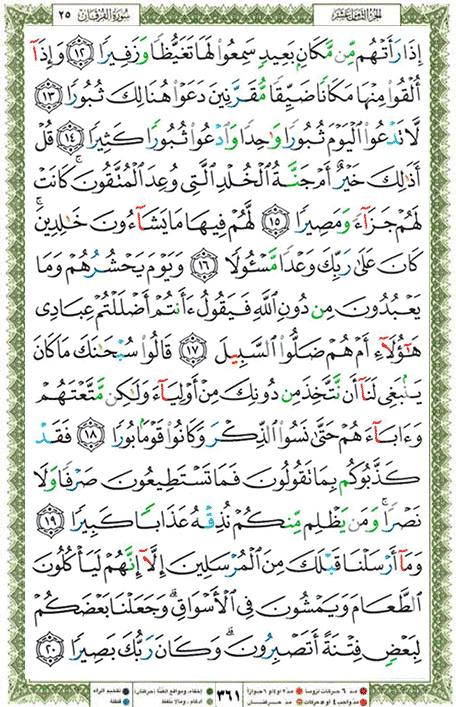 سُورَةُ الفُرْقَان ٢٥
إِذَا رَأَتْهُم مِّن مَّكَانٍ بَعِيدٍ سَمِعُوا۟ لَهَا تَغَيُّظًا وَزَفِيرًا ١٢ وَإِذَآ
أُلْقُوا۟ مِنْهَا مَكَانًا ضَيِّقًا مُّقَرَّنِينَ دَعَوْا۟ هُنَالِكَ ثُبُورًا ١٣
لَّا تَدْعُوا۟ ٱلْيَوْمَ ثُبُورًا وَٰحِدًا وَٱدْعُوا۟ ثُبُورًا كَثِيرًا ١٤ قُلْ
أَذَٰلِكَ خَيْرٌ أَمْ جَنَّةُ ٱلْخُلْدِ ٱلَّتِى وُعِدَ ٱلْمُتَّقُونَ ۚ كَانَتْ
لَهُمْ جَزَآءً وَمَصِيرًا ١٥ لَّهُمْ فِيهَا مَا يَشَآءُونَ خَٰلِدِينَ ۚ
كَانَ عَلَىٰ رَبِّكَ وَعْدًا مَّسْـُٔولًا ١٦ وَيَوْمَ يَحْشُرُهُمْ وَمَا
يَعْبُدُونَ مِن دُونِ ٱللَّهِ فَيَقُولُ ءَأَنتُمْ أَضْلَلْتُمْ عِبَادِى
هَٰٓؤُلَآءِ أَمْ هُمْ ضَلُّوا۟ ٱلسَّبِيلَ ١٧ قَالُوا۟ سُبْحَٰنَكَ مَا كَانَ
يَنۢبَغِى لَنَآ أَن نَّتَّخِذَ مِن دُونِكَ مِنْ أَوْلِيَآءَ وَلَٰكِن مَّتَّعْتَهُمْ
وَءَابَآءَهُمْ حَتَّىٰ نَسُوا۟ ٱلذِّكْرَ وَكَانُوا۟ قَوْمًۢا بُورًا ١٨ فَقَدْ
كَذَّبُوكُم بِمَا تَقُولُونَ فَمَا تَسْتَطِيعُونَ صَرْفًا وَلَا
نَصْرًا ۚ وَمَن يَظْلِم مِّنكُمْ نُذِقْهُ عَذَابًا كَبِيرًا ١٩
وَمَآ أَرْسَلْنَا قَبْلَكَ مِنَ ٱلْمُرْسَلِينَ إِلَّآ إِنَّهُمْ لَيَأْكُلُونَ
ٱلطَّعَامَ وَيَمْشُونَ فِى ٱلْأَسْوَاقِ ۗ وَجَعَلْنَا بَعْضَكُمْ
لِبَعْضٍ فِتْنَةً أَتَصْبِرُونَ ۗ وَكَانَ رَبُّكَ بَصِيرًا ٢٠
٣٦١